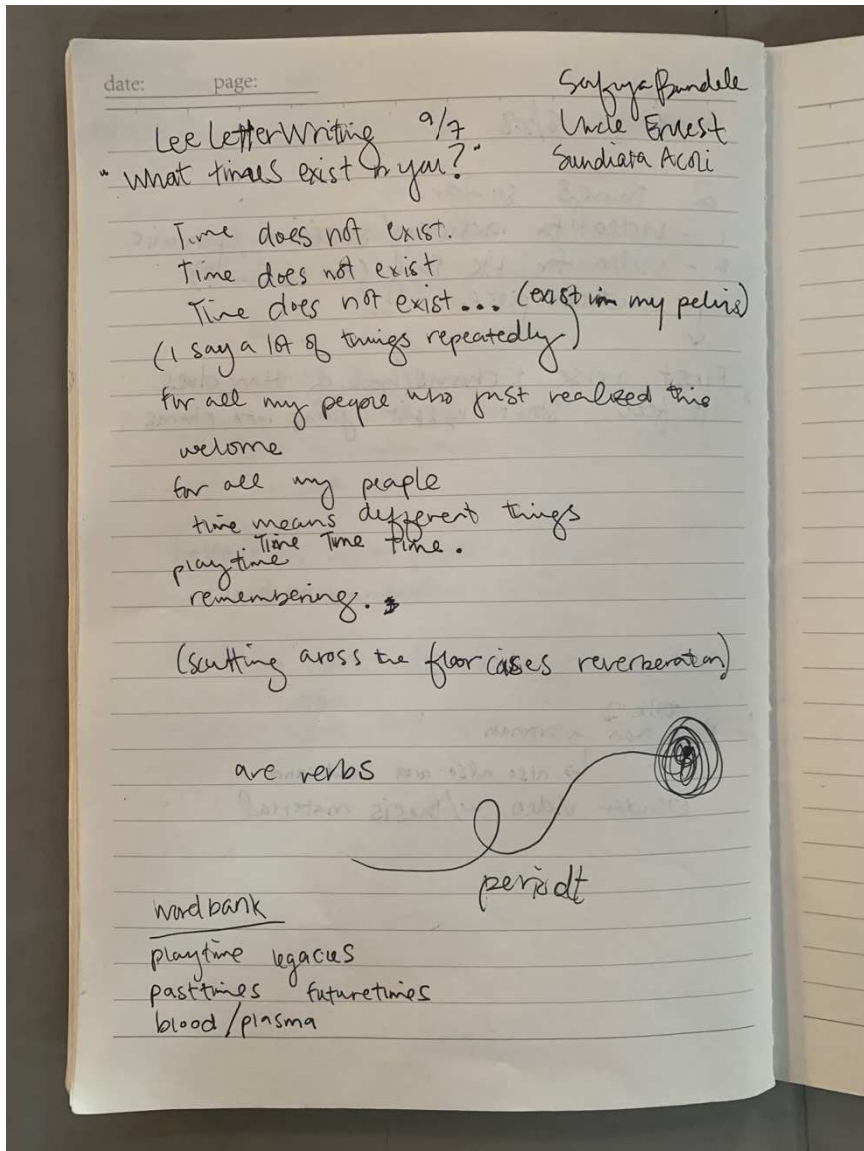 date: page:
Safiya Bandele
Lee Letter Writing 9/7
Uncle Ernest
"What times exist in you?"
Sundiata Acoli
Time does not exist.
Time does not exist
Time does not exist... (exist in my pelvis)
(I say a lot of things repeatedly)
for all my people who just realized this
welome
for all my people
time means different things
Time Time time.
playtime
remembering.
(scutting aross the floor reverberation)
are verbs
periodt
word bank
playtime legacies
pasttimes futuretimes
blood/plasma